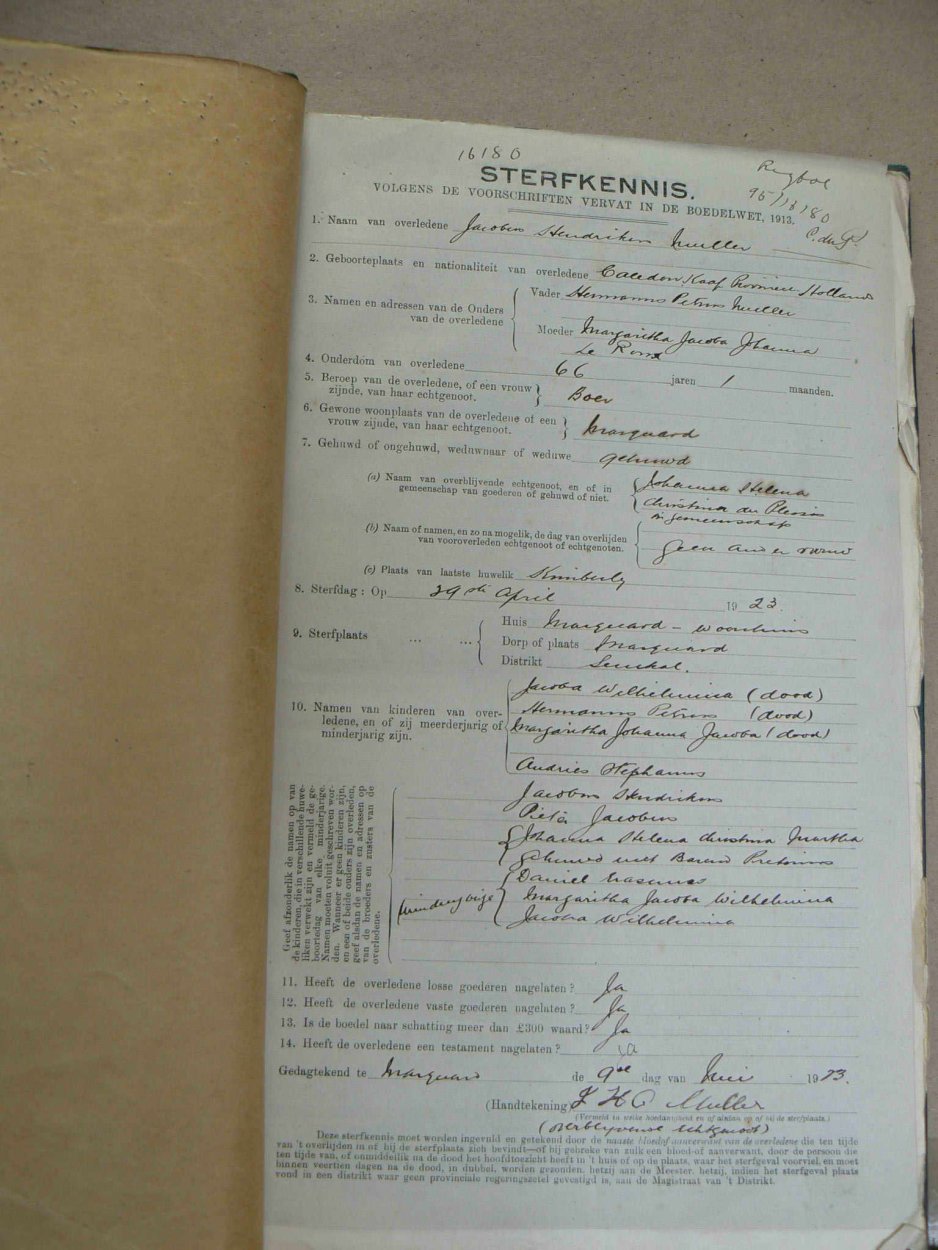 16180
STERFKENNIS.
95/16180
VOLGENS DE VOORSCHRIFTEN VERVAT IN DE BOEDELWET, 1913.
C. du P.
1. Naam van overledene Jacobus Hendrikus Muller
2. Geboorteplaats en nationaliteit van overledene Caledon Kaap Provincie Hollands
3. Namen en adressen van de Ouders van de overledene
Vader Hermanus Petrus Muller
Moeder Margaritha Jacoba Johanna
Le Roux
4. Onderdom van overledene 66 jaren 1 maanden.
5. Beroep van de overledene, of een vrouw zijnde, van haar echtgenoot. Boer
6. Gewone woonplaats van de overledene of een vrouw zijnde, van haar echtgenoot. Marquard
7. Gehuwd of ongehuwd, weduwnaar of weduwe gehuwd
(a) Naam van overblijvende echtgenoot, en of in gemeenschap van goederen of gehuwd of niet.
Johanna Helena
Christina du Plessis
in gemeenschap
(b) Naam of namen, en zo na mogelik, de dag van overlijden van vooroverleden echtgenoot of echtgenoten.
geen ander vrouw
(c) Plaats van laatste huwelik Kimberly
8. Sterfdag: Op 29ste April 1923.
9. Sterfplaats ... ...
Huis Marquard – woonhuis
Dorp of plaats Marquard
Distrikt Senekal.
10. Namen van kinderen van overledene, en of zij meerderjarig of minderjarig zijn.
Jacoba Wilhelmina (dood)
Hermanus Petrus (dood)
Margaritha Johanna Jacoba (dood)
Andries Stephanus
Jacobus Hendrikus
Pieter Jacobus
Johanna Helena Christina Martha
gehuwd met Barend Pretorius
Daniel Erasmus
minderjarige
Margaritha Jacoba Wilhelmina
Jacoba Wilhelmina
Geef afzonderlik de namen op van
de kinderen, die in verschillende huwe-
liken verwekt zijn en vermeld de ge-
boortedag van elke minderjarige.
Namen moeten voluit geschreven wor-
den. Wanneer er geen kinderen zijn,
en een of beide ouders zijn overleden,
geef alsdan de namen en adressen op
van de broeders en zusters van de
overledene.
11. Heeft de overledene losse goederen nagelaten? Ja
12. Heeft de overledene vaste goederen nagelaten? Ja
13. Is de boedel naar schatting meer dan £300 waard? Ja
14. Heeft de overledene een testament nagelaten? ja
Gedagtekend te Marquard de 9de dag van Mei 1923.
(Handtekening) J H C Muller
(Vermeld in welke hoedanigheid en of alsdan op of bij de sterfplaats.)
(overblyvende Echtgenoot)
Deze sterfkennis moet worden ingevuld en getekend door de naaste bloed of aanverwant van de overledene die ten tijde
van 't overlijden in of bij de sterfplaats zich bevindt—of bij gebreke van zulk een bloed-of aanverwant, door de persoon die
ten tijde van, of onmiddelik na de dood het hoofdtoezicht heeft in 't huis of op de plaats, waar het sterfgeval voorviel, en moet
binnen veertien dagen na de dood, in dubbel, worden gezonden, hetzij aan de Meester, hetzij, indien het sterfgeval plaats
vond in een distrikt waar geen provinciale regeringszetel gevestigd is, aan de Magistraat van 't Distrikt.